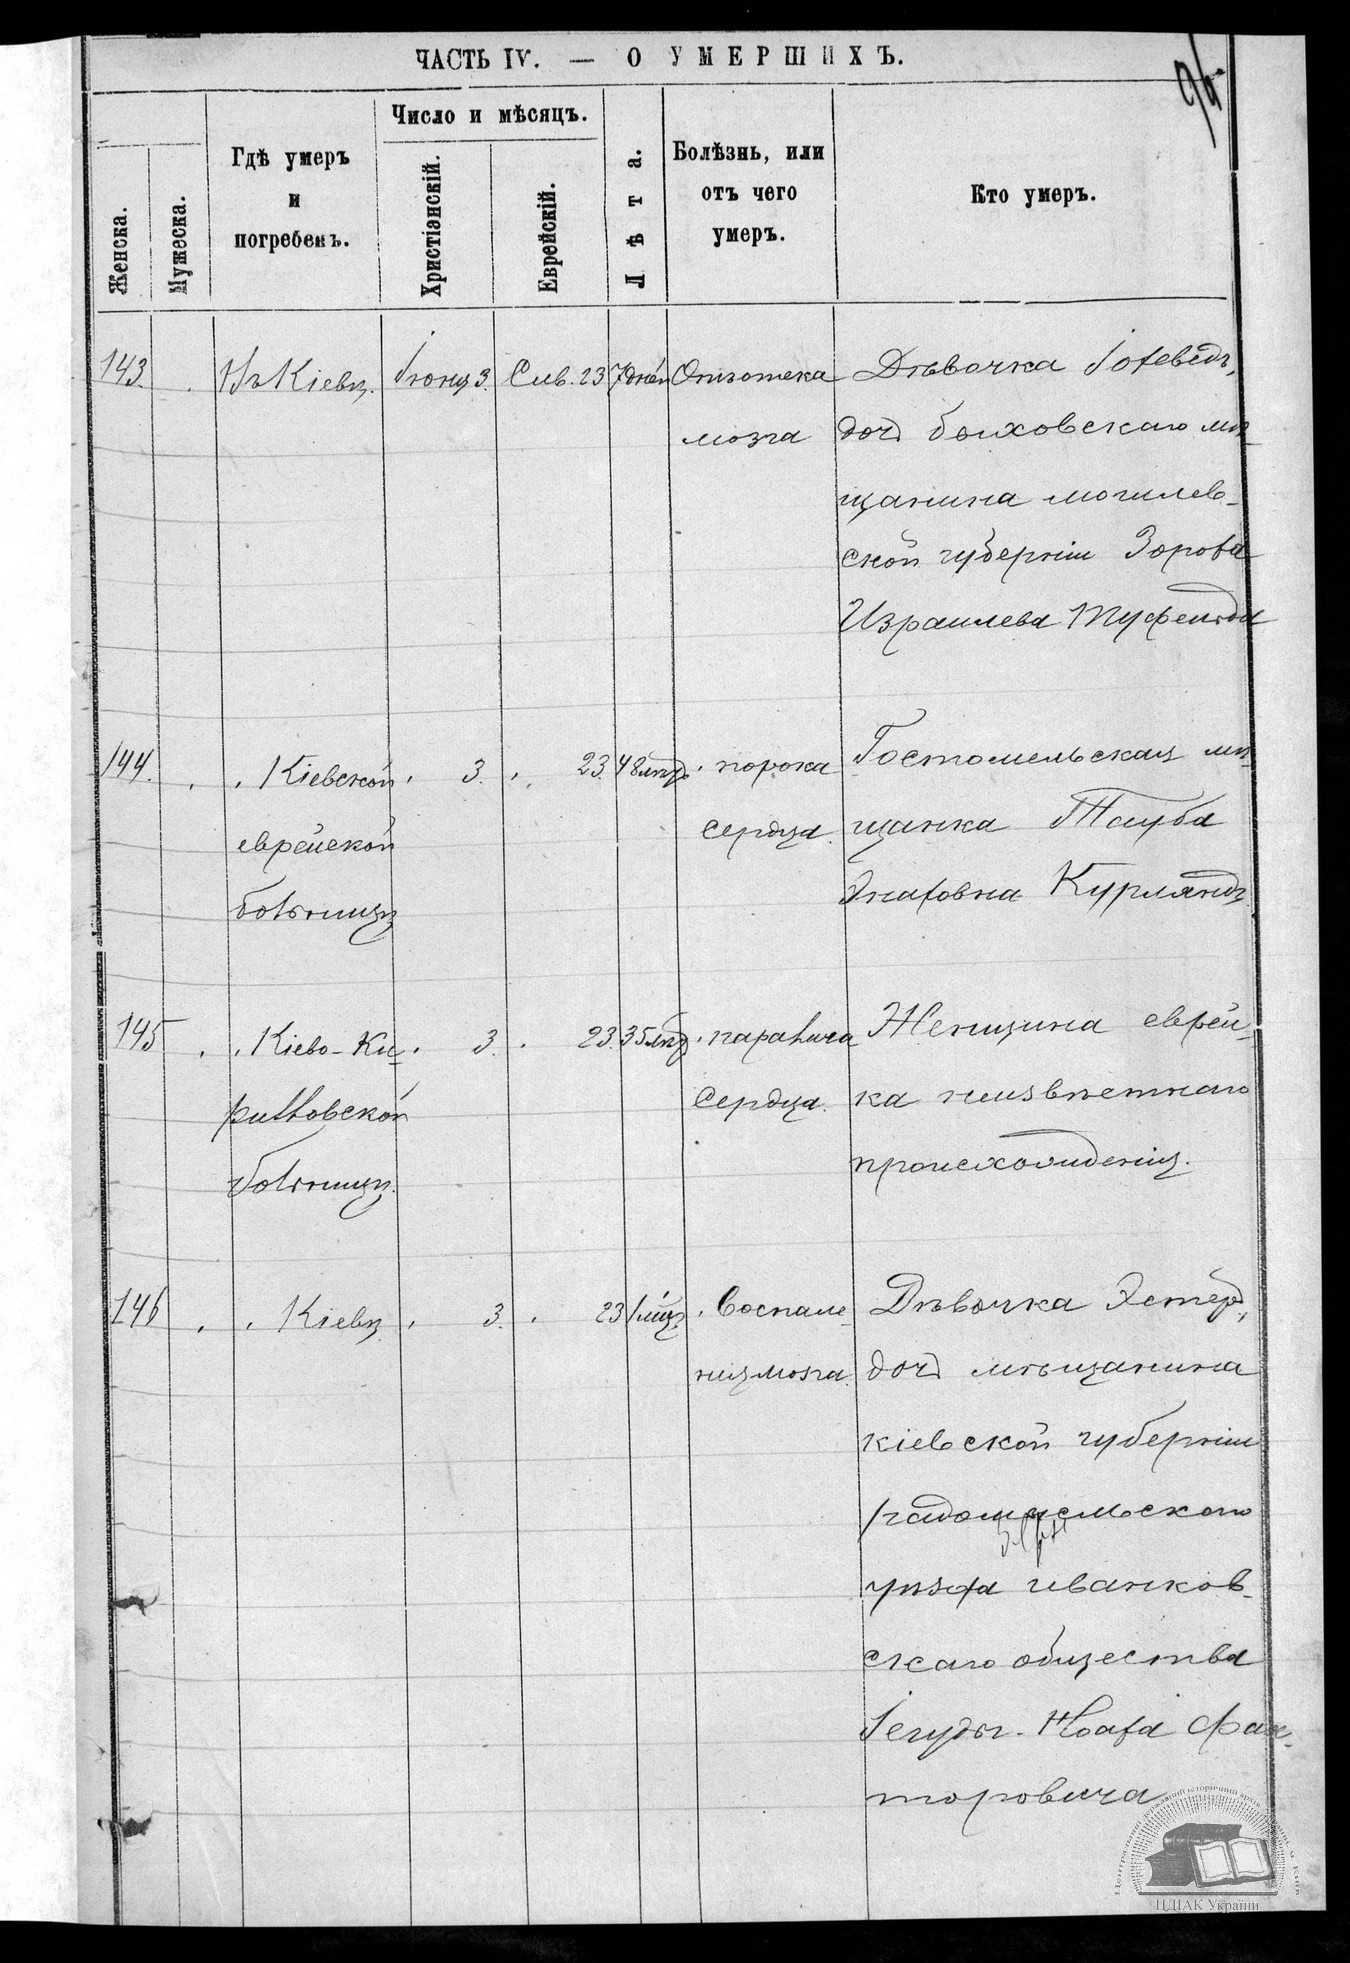 ЧАСТЬ IV. — О УМЕРШИХЪ.
Женска.
Мужеска.
Гдѣ умеръ
и
погребенъ.
Число и мѣсяцъ.
Христіанскій.
Еврейскій.
Лѣта.
Болѣзнь, или
отъ чего
умеръ.
Кто умеръ.
143.
Въ Кіевѣ.
Іюня 3.
Сив. 23
7 дней
Отъ отека
мозга
Дѣвочка Іохеведъ,
дочь быховскаго мѣ-
щанина могилев-
ской губерніи Зораха
Израилева Туфельда
144.
" Кіевской
еврейской
больницѣ
" 3.
" 23.
48 лѣтъ
" порока
сердца.
Гостомельская мѣ-
щанка Тауба
Эльховна Курляндъ
145
" Кіево-Ки-
рилловской
больницѣ.
" 3.
" 23.
35 лѣтъ
" паралича
сердца.
Женщина еврей-
ка неизвѣстнаго
происхожденія.
146
" Кіевѣ.
" 3.
" 23
1 мѣс.
" воспале-
нія мозга.
Дѣвочка Эстеръ,
дочь мѣщанина
кіевской губерніи
радомысльскаго
уѣзда иванков-
скаго общества
Іегуды-Ноаха Фак-
торовича
ЦДІАК України